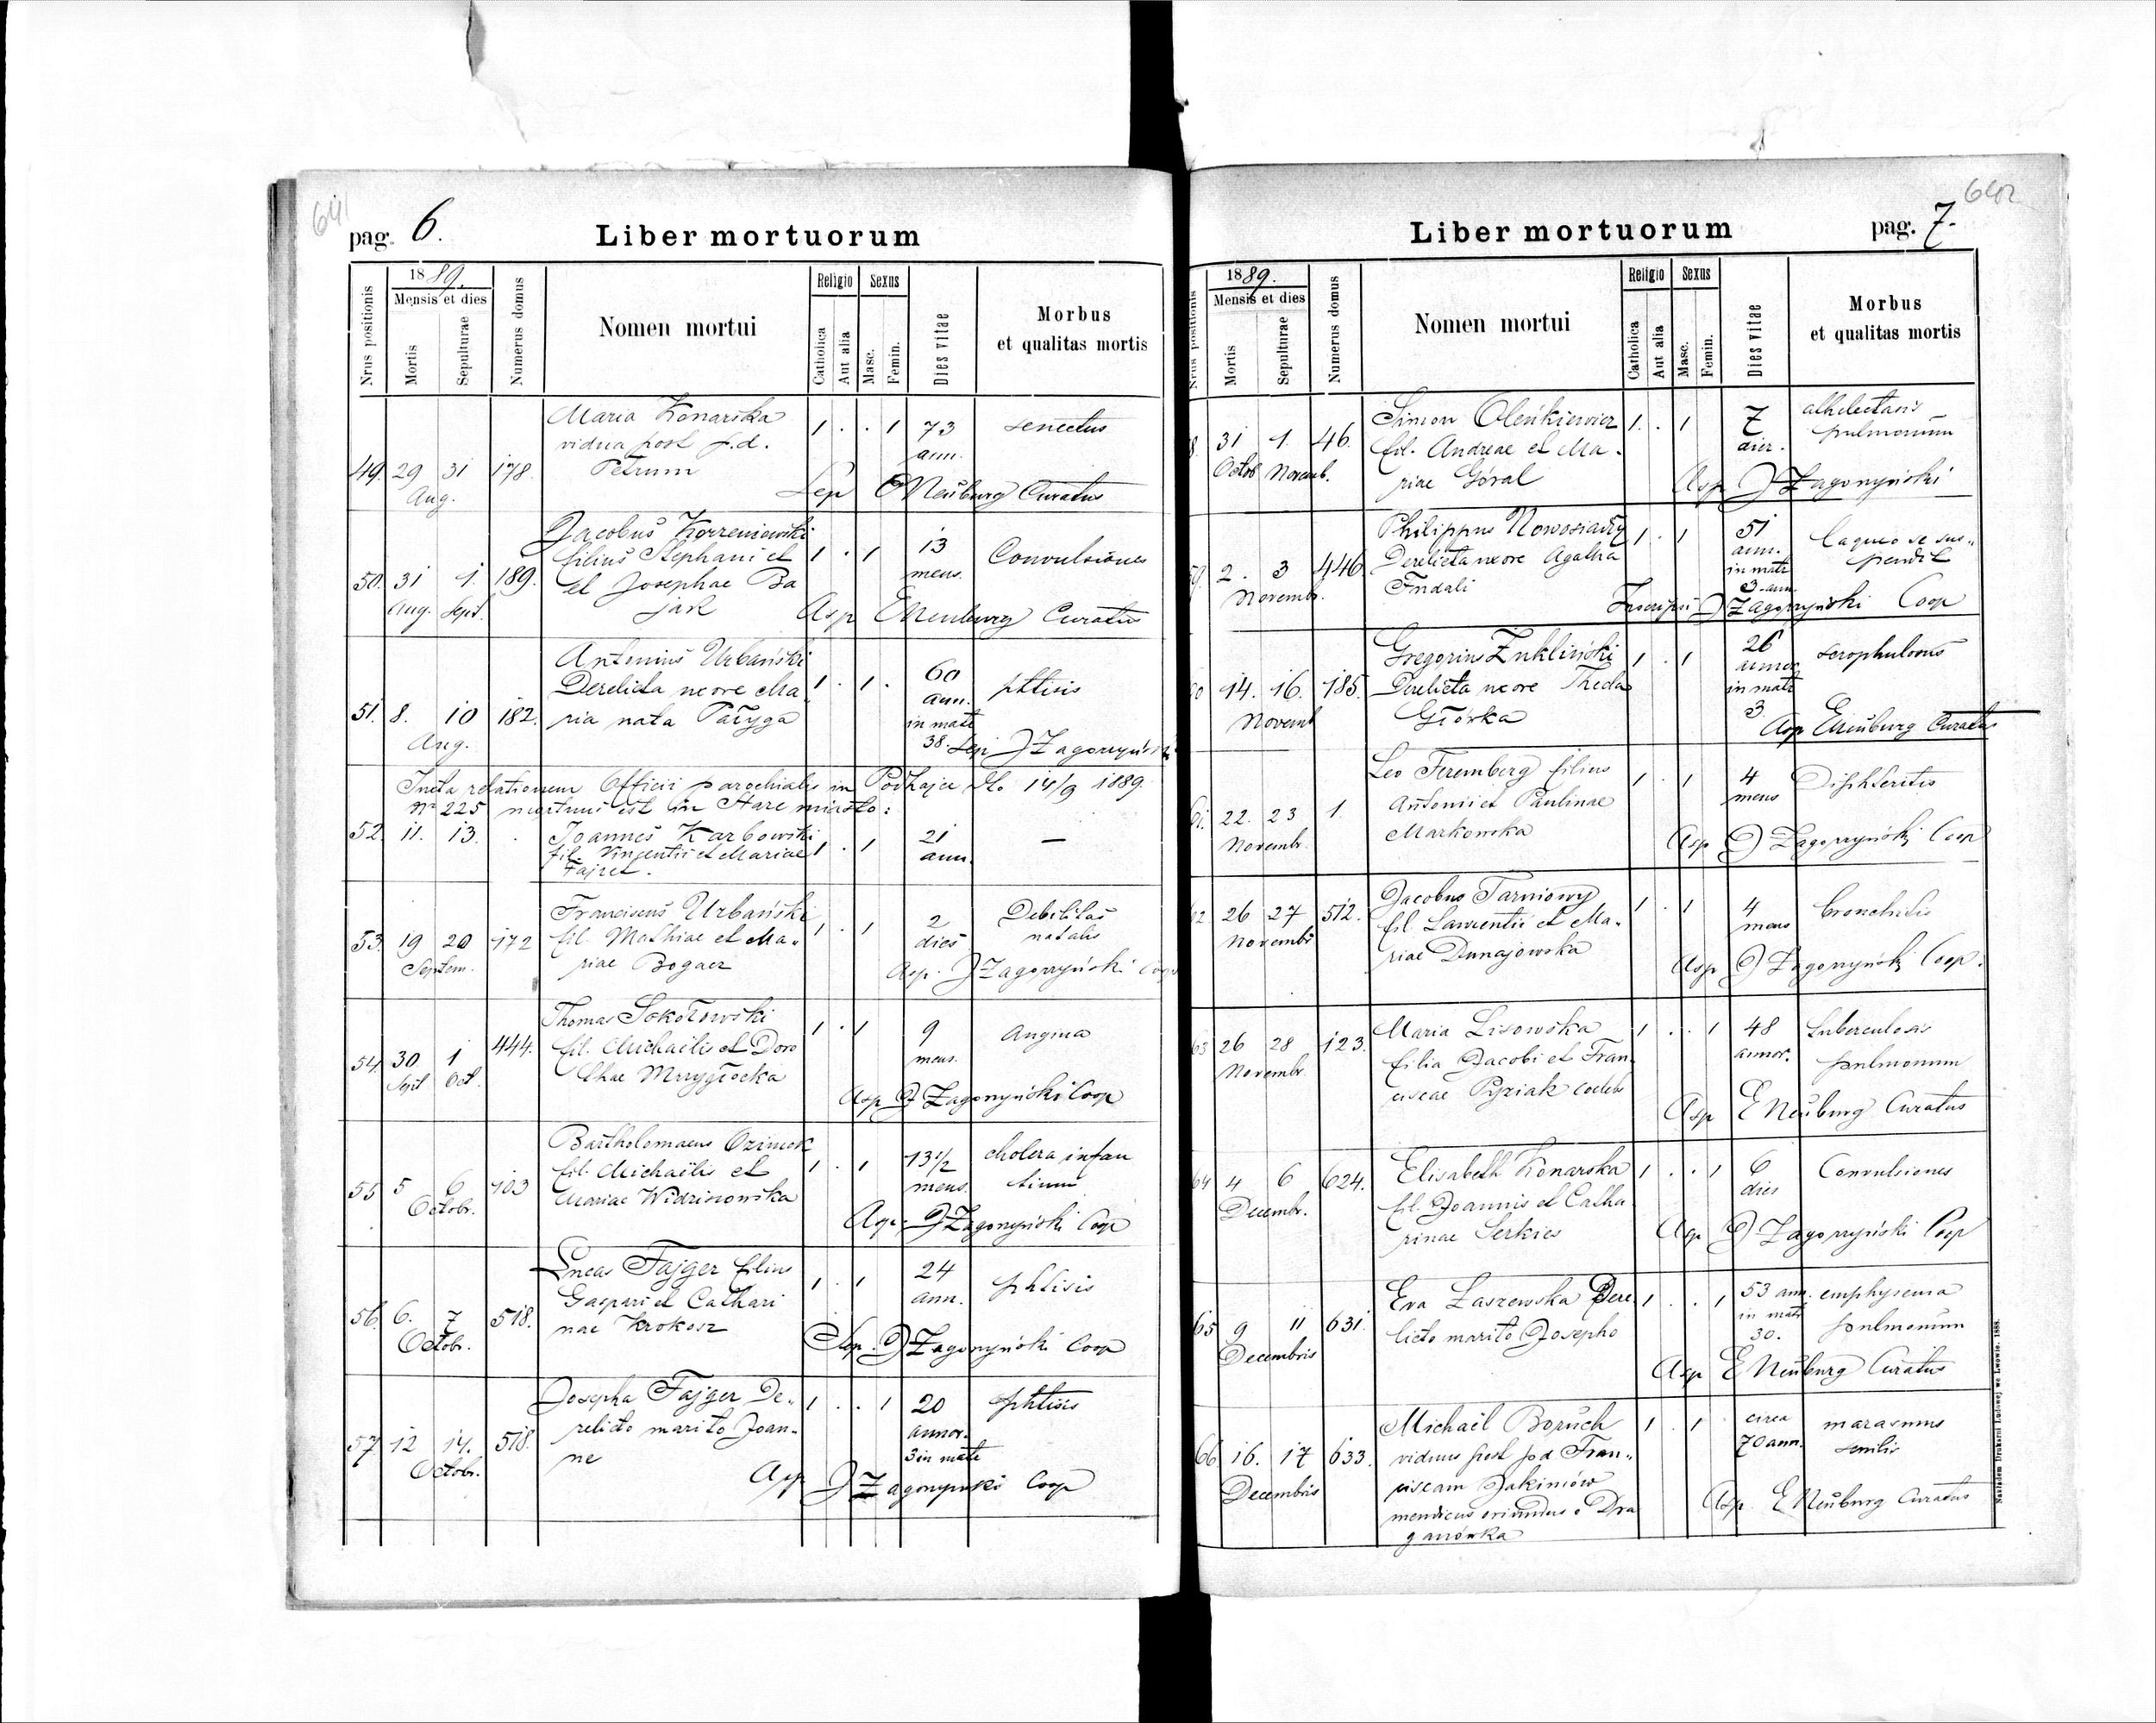 641
pag. 6.
Liber mortuorum
Nrus positionis
1889.
Mensis et dies
Mortis
Sepulturae
Numerus domus
Nomen mortui
Religio
Catholica
Aut alia
Sexus
Masc.
Femin.
Dies vitae
Morbus
et qualitas mortis
Maria Konarska 1 . . 1 73 senectus
vidua post p.d. ann.
49. 29 31 178. Petrum
Aug. Sep ENeuburg Curatus
Jacobus Korzeniowski
filius Stephani et 1 . 1 13 Convulsiones
50. 31 1. 189. et Josephae Ba mens.
Aug. Sept. jak Asp ENeuburg Curatus
Antonius Urbański
Derelicta uxore Ma 1 . 1 . 60 phtisis
ann.
51. 8. 10 182. ria nata Pałyga in matr
Aug. 38. Sep J Zagorzyński
Juxta relationem Officii parochialis in Podhajce dto 14/9 1889
No 225 mortuus est in Stare miasto:
52. 11. 13. . Joannes Karbowski 1 . 1 21 —
fil. Vincentii et Mariae ann.
Franciscus Urbański 2 Debilitas
53. 19 20 172 fil. Mathiae et Ma- 1 . 1 dies natalis
Septem. riae Bogacz Asp. J Zagorzyński Coop
Thomas Sokołowski 1 . 1 9 Angina
54. 30 1 444. fil. Michaelis et Doro mens.
Sept Oct. thae Mrzygłocka
Asp J Zagorzyński Coop
Bartholomaeus Ozimok 13 1/2 cholera infan
fil. Michaelis et 1 . 1 mens. tium
55 5 6 103 Mariae Widzinowska
Octobr. Asp. J Zagorzyński Coop
Lucas Fajger filius 1 . 1 24 phtisis
Gaspari et Cathari ann.
56. 6. 7 518. nae Krokosz
Octobr. Sep. J Zagorzyński Coop
Josepha Fajger De- 1 . . 1 20 phtisis
relicto marito Joan- annor.
57. 12 14. 518. ne 3 in matr
Octobr. Asp J Zagorzynski Coop
642
Liber mortuorum
pag. 7.
Nrus positionis
1889.
Mensis et dies
Mortis
Sepulturae
Numerus domus
Nomen mortui
Religio
Catholica
Aut alia
Sexus
Masc.
Femin.
Dies vitae
Morbus
et qualitas mortis
Simon Oleńkiewicz 1 . 1 7 athelectasis
8. 31 1. 46. fil. Andreae et Ma- dier. pulmonum
Octob Novemb. riae Góral Asp J Zagorzyński
Philippus Nowosiadły 1 . 1 51 laqueo se sus-
Derelicta uxore Agatha ann. pendit
9. 2. 3 446 in matr
Novembr. 3 ann.
Inscripsi J Zagorzyński Coop
Gregorius Żukliński 1 . 1 26 scrophulosus
annor.
0 14. 16. 185. Derelicta uxore Thecla in matr
Novemb Giórka 3.
Asp ENeuburg Curatus
Leo Feremberg filius 1 . 1 4 Diphteritis
Antonii et Paulinae mens
61. 22. 23 1. Markowska
Novembr. Asp J Zagorzyński Coop
Jacobus Tarniowy 1 . 1 4 bronchitis
62 26 27 512. fil. Laurentii et Ma- mens
Novembr riae Dunajowska
Asp J Zagorzyński Coop.
Maria Lisowska 1 . . 1 48 tuberculosis
63 26 28 123. filia Jacobi et Fran annor. pulmonum
Novembr ciscae Pyziak coelebs
Asp E Neuburg Curatus
Elisabeth Konarska 1 . . 1 6 Convulsiones
64 4 6 624. fil. Joannis et Catha dies
Decembr. rinae Serkies Asp J Zagorzyński Coop
Eva Laszewska Dere 1 . . 1 53 ann. emphysema
in matr pulmonum
65 9 11 631. licto marito Josepho 30.
Decembris Asp E Neuburg Curatus
Michaël Boruch 1 . 1 circa marasmus
70 ann. senilis
66 16. 17 633. viduus post p d Fran-
Decembris ciscam Jakimów
mendicus oriundus e Dra Asp. E Neuburg Curatus
ganówka
Nakładem Drukarni Ludowej we Lwowie. 1888.